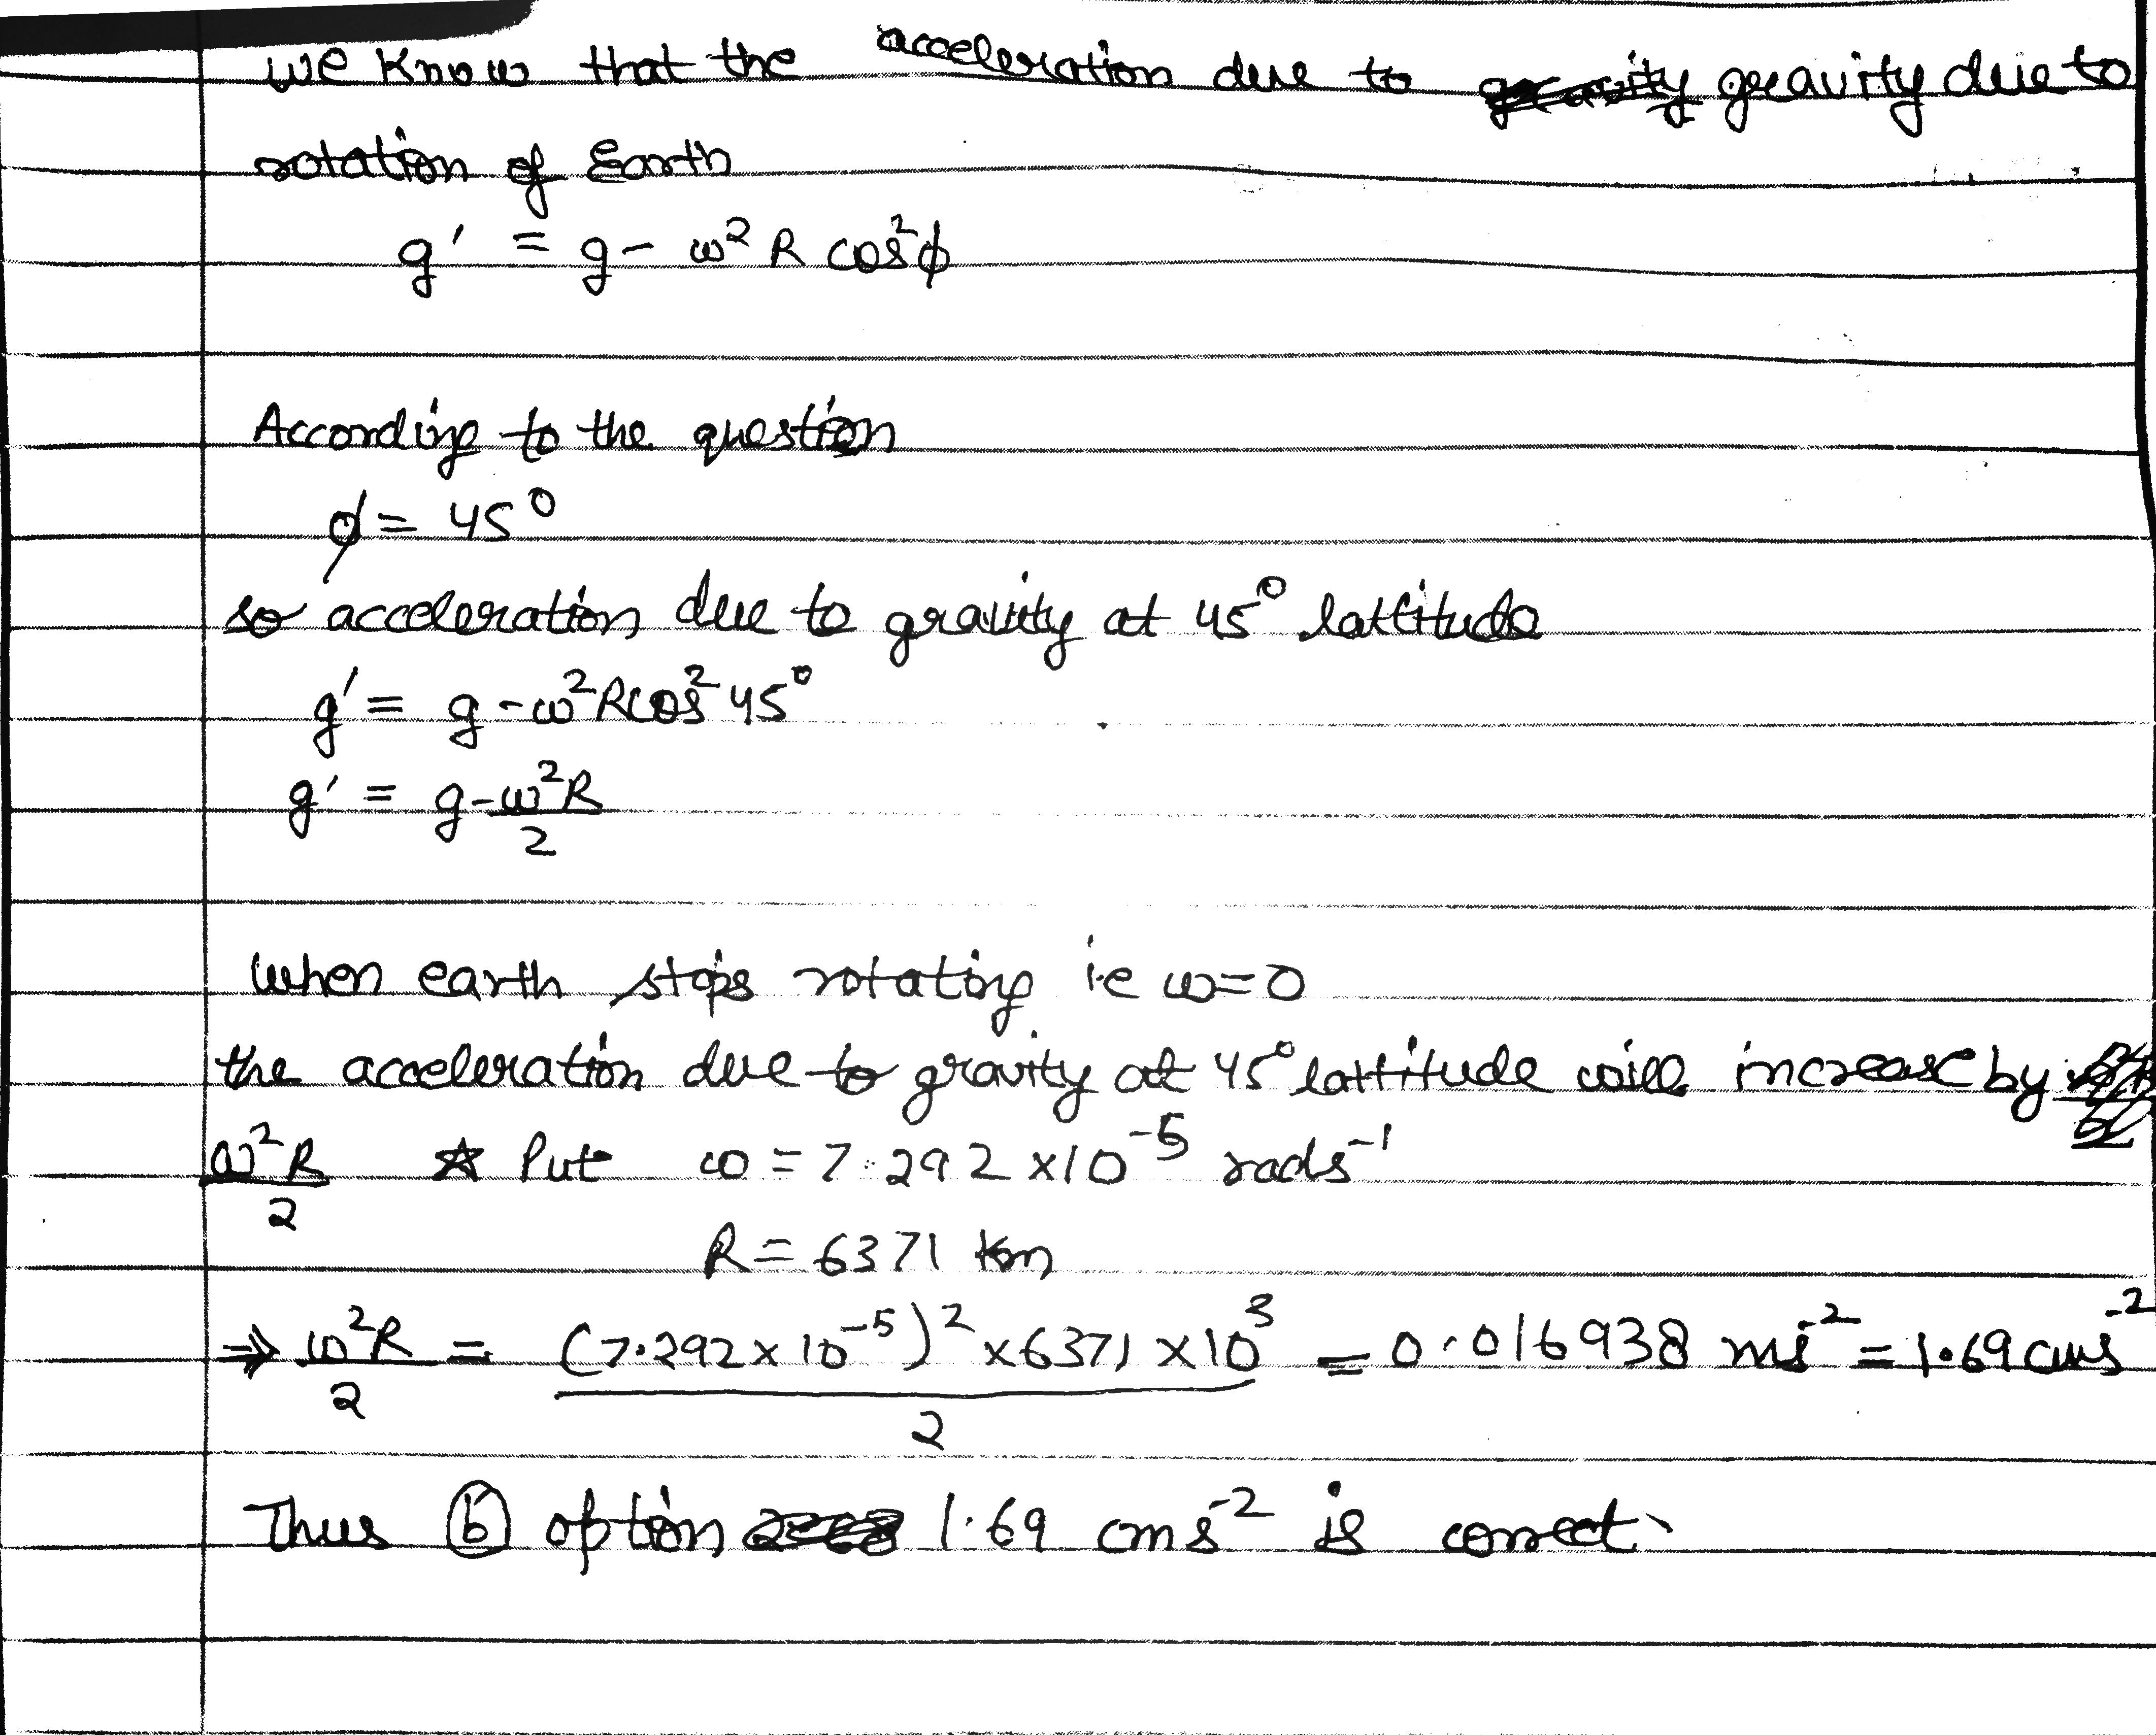 we know that the acceleration due to gravity gravity due to
rotation of Earth
g' = g - ω² R cos²ϕ
According to the question
ϕ = 45°
so acceleration due to gravity at 45° lattitude
g' = g - ω²Rcos² 45°
g' = g - ω²R/2
when earth stops rotating i.e ω=0
the acceleration due to gravity at 45° lattitude will increase by
ω²R/2 ☆ Put ω = 7.292 ×10⁻⁵ rads⁻¹
R = 6371 km
⇒ ω²R/2 = (7.292 × 10⁻⁵)² ×6371 ×10³/2 = 0.016938 ms⁻² = 1.69 cms⁻²
Thus ⓑ option 1.69 cms⁻² is correct.